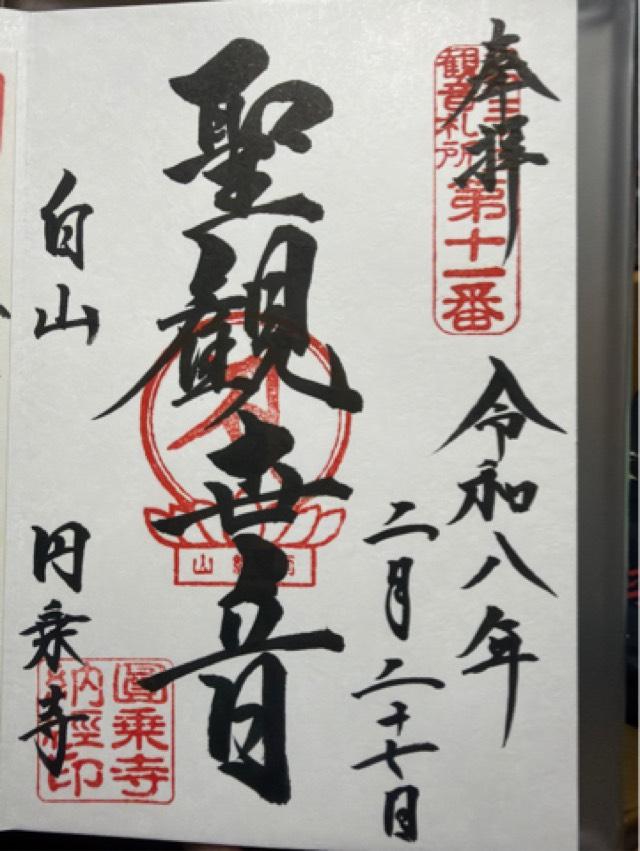 奉拝
観音札所
第十一番
令和八年
二月二十七日
聖観世音
山
白山
円乗寺
圓乗寺
納經印